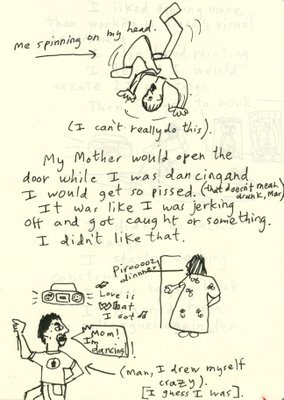 me spinning on my head.
(I can't really do this).
My Mother would open the
door while I was dancing and
I would get so pissed. (that doesn't mean
drunk, Mar)
It was like I was jerking
off and got caught or something.
I didn't like that.
dinner!
Love is
What
I got
Mom!
I'm
dancing!
(Man, I drew myself
crazy).
[I guess I was].